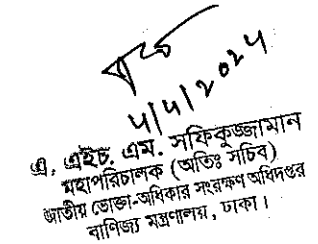 ৭/৭/২০২৪
এ. এইচ. এম. সফিকুজ্জামান
মহাপরিচালক (অতিঃ সচিব)
জাতীয় ভোক্তা-অধিকার সংরক্ষণ অধিদপ্তর
বাণিজ্য মন্ত্রণালয়, ঢাকা।